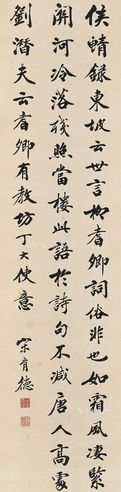 侯鯖錄東坡云世言柳耆卿詞俗非也如霜風凄緊
關河冷落殘照當樓此語於詩句不減唐人高處
劉潛夫云耆卿有教坊丁大使意
宋育德